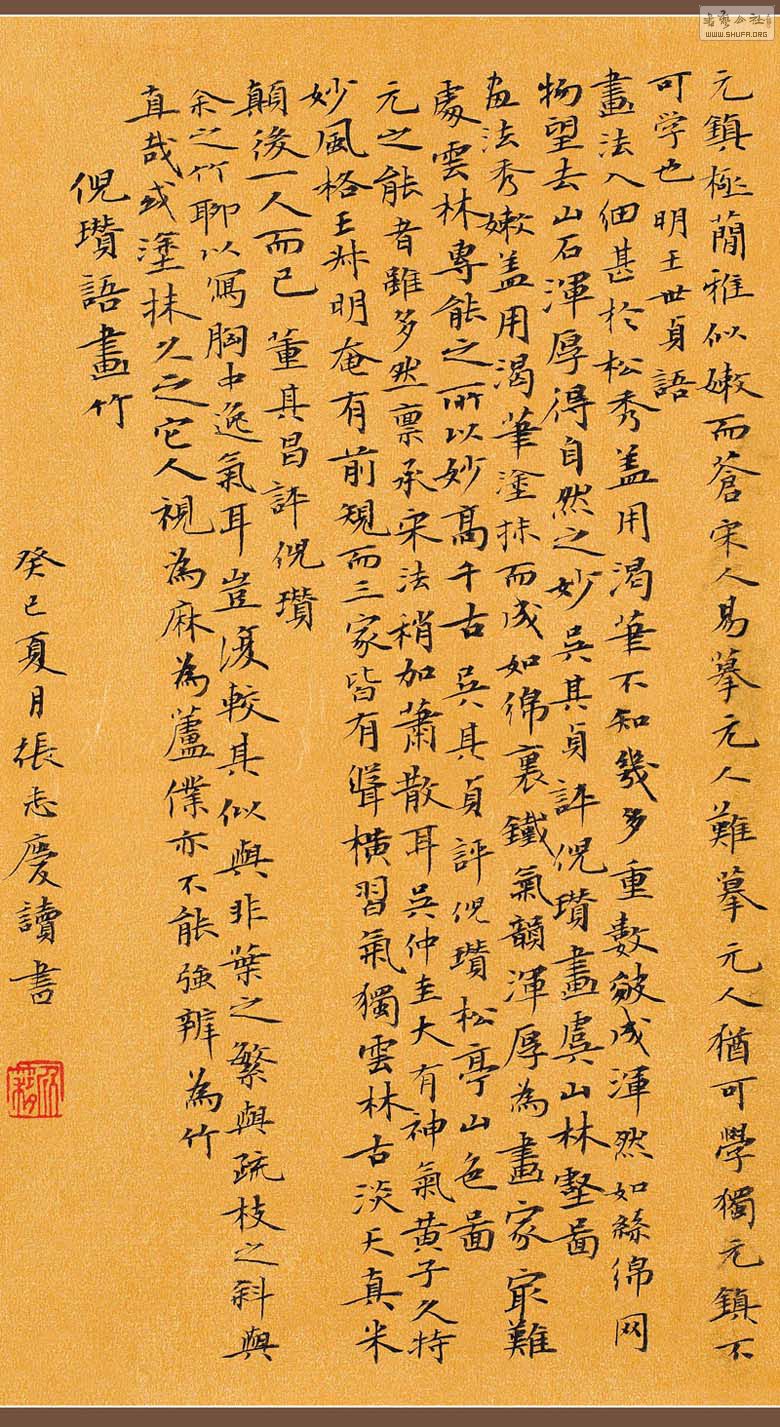 元鎮極簡雅似嫩而蒼宋人易摹元人難摹元人猶可學獨元鎮不
可学也明王世貞語
畫法入細甚於松秀盖用渴筆不知幾多重數皴成渾然如絲綿网
物望去山石渾厚得自然之妙吴其貞評倪瓚畫虞山林壑啚
畫法秀嫩盖用渴筆塗抹而成如綿裏鐵氣韻渾厚為畫家㝡難
處雲林專能之所以妙高千古吴其貞評倪瓚松亭山色啚
元之能者雖多然禀承宋法稍加蕭散耳吴仲圭大有神氣黄子久特
妙風格王叔明奄有前規而三家皆有縱橫習氣獨雲林古淡天真米
顛後一人而已 董其昌評倪瓚
余之竹聊以寫胸中逸氣耳豈復較其似與非葉之繁與疏枝之斜與
直哉或塗抹久之它人視為麻為蘆僕亦不能強辨為竹
倪瓚語畫竹
癸巳夏月張志慶讀書
書藝公社
WWW.SHUFA.ORG